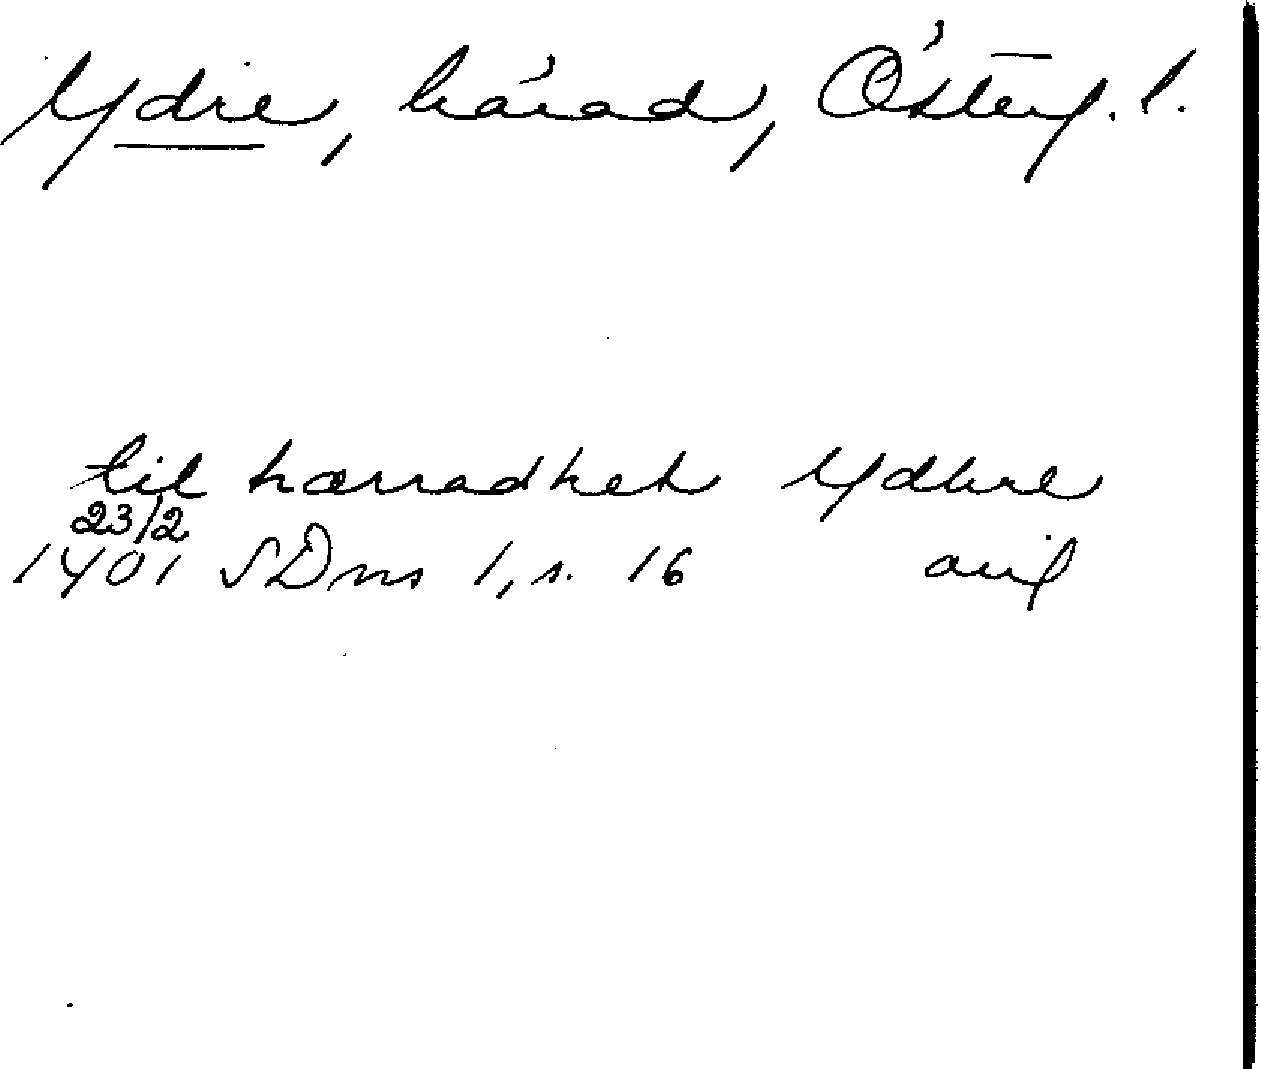 Ydre, härad, Österg. l.
til hærradhet Ydhre
23/2
1401 SDns 1, s. 16 avil